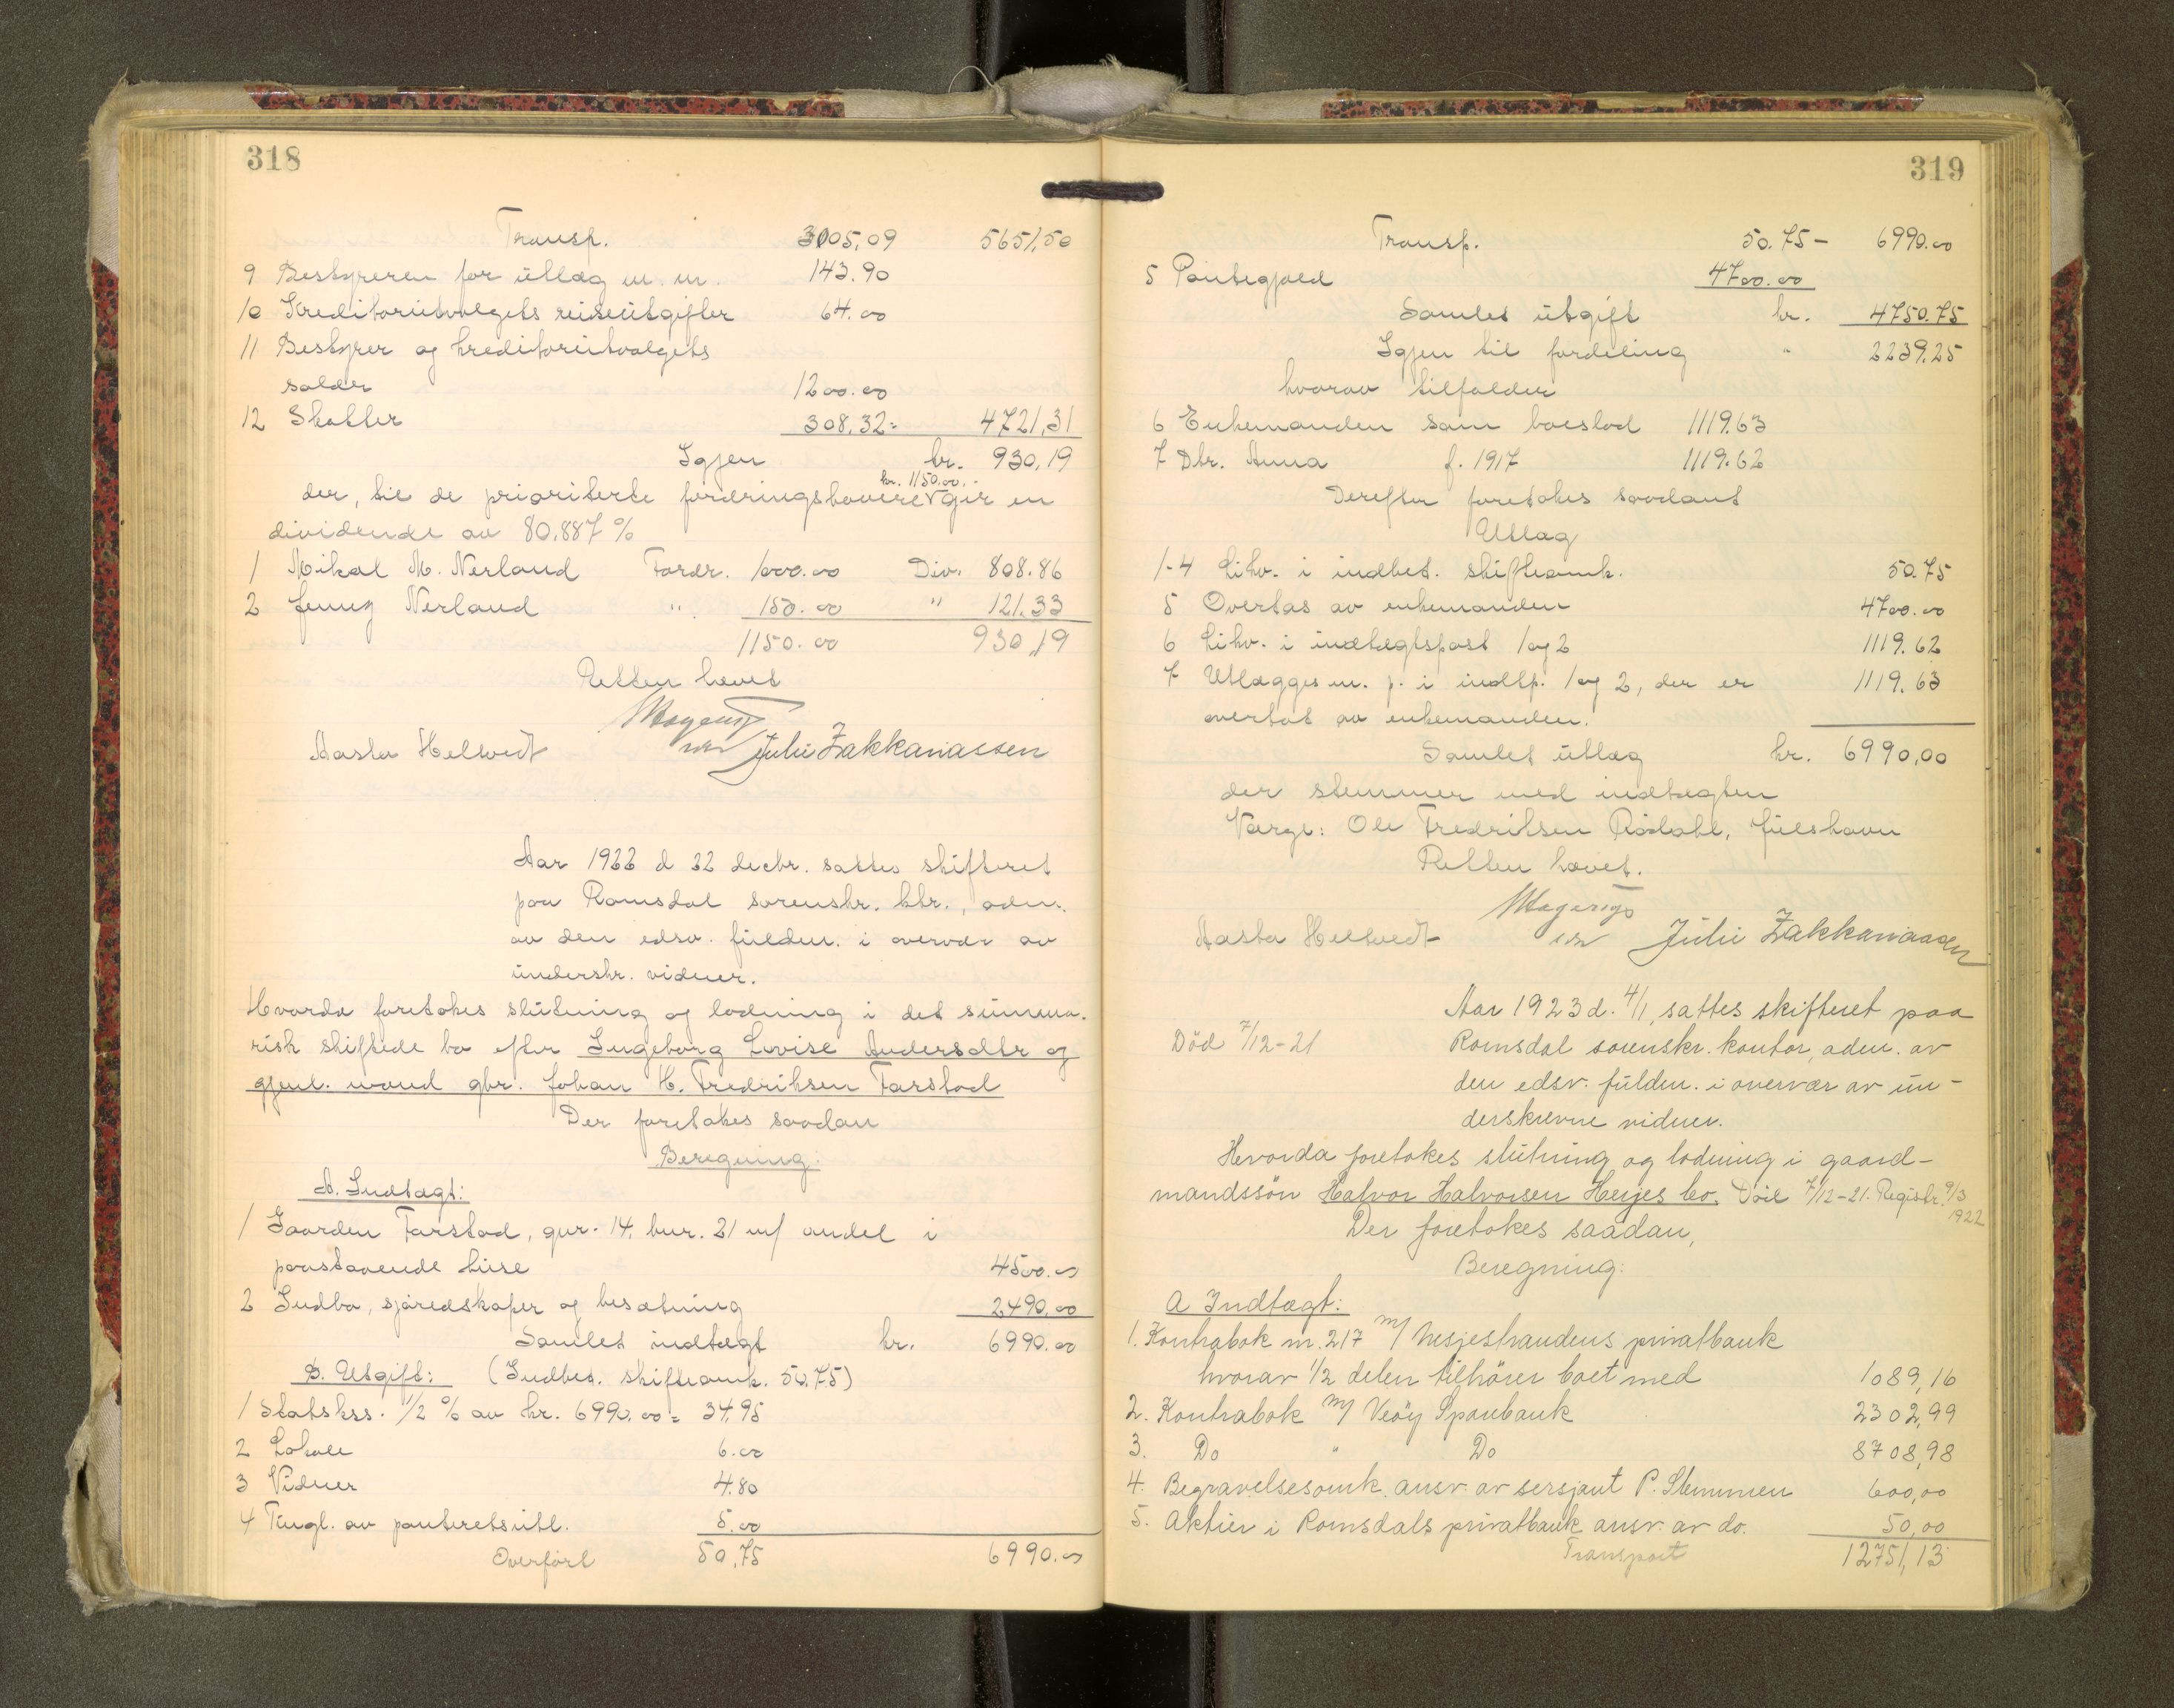 318
Transp. 3005,09 5651,50
9 Bestyreren for utlæg m. m. 143.90
10 Kreditorutvalgets reiseutgifter 64.00
11 Bestyrer og kreditorutvalgets
salær 1200.00
12 Skatter 308,32= 4721,31
Igjen kr. 930,19
kr. 1150.00.
der, til de prioriterte fordringshavere gir en
dividende av 80,887 %
1 Mikal M. Nerland Fordr. 1000.00 Div. 808.86
2 Jenny Nerland " 150.00 " 121.33
1150.00 930,19
Retten hævet
Aasta Heltvedt Julie Zakkariassen
Aar 1922 d 22 decbr. sattes skifteret
paa Romsdal sorenskr. ktr., adm.
av den edsv. fuldm. i overvær av
underskr. vidner.
Hvorda foretokes slutning og lodning i det summa-
risk skiftede bo efter Ingeborg Lovise Andersdtr og
gjenl. mand gbr. Johan H. Fredriksen Farstad
Der foretokes saadan
Beregning:
A. Indtægt:
1 Gaarden Farstad, gnr. 14, bnr. 21 m/ andel i
paastaaende huse 4500.00
2 Indbo, sjøredskaper og besætning 2490.00
Samlet indtægt kr. 6990.00
B. Utgift: (Indbet. skifteomk. 50.75)
1 Statskss. 1/2 % av kr. 6990.00 = 34.95
2 Lokale 6.00
3 Vidner 4.80
4 Tingl. av panteretsutl. 5.00
Overført 50,75 6990.00
319
Transp. 50.75- 6990.00
5 Pantegjæld 4700.00
Samlet utgift kr. 4750.75
Igjen til fordeling " 2239.25
hvorav tilfalder
6 Enkemanden som boeslod 1119.63
7 Dtr. Anna f. 1917 1119.62
Derefter foretokes saadant
Utlæg
1-4 Likv. i indbet. skifteomk. 50.75
5 Overtas av enkemanden 4700.00
6 Likv. i indtægtspost 1 og 2 1119.62
7 Utlægges m. p. i indtp. 1 og 2, der er 1119.63
overtat av enkemanden.
Samlet utlæg kr. 6990,00
der stemmer med indtægten
Værge: Ole Fredriksen Rødahl, Julshavn
Retten hævet.
Aasta Heltvedt Julie Zakkariassen
Aar 1923 d. 4/1, sattes skifteret paa
Død 7/12-21 Romsdal sorenskr. kontor, adm. av
den edsv. fuldm. i overvær av un-
derskrevne vidner.
Hvorda foretokes slutning og lodning i gaard-
mandssøn Halvor Halvorsen Herjes bo. Død 7/12-21. Registr. 9/3
1922
Der foretokes saadan,
Beregning:
A Indtægt:
1. Kontrabok nr. 217 m/ Nesjestrandens privatbank
hvorav 1/2 delen tilhører boet med 1089,16
2. Kontrabok m/ Veøy Sparebank 2302,99
3. Do " Do 8708,98
4. Begravelsesomk. ansv. av sersjant P. Stemmen 600,00
5. Aktier i Romsdals privatbank ansv. av do. 50,00
Transport 12751,13